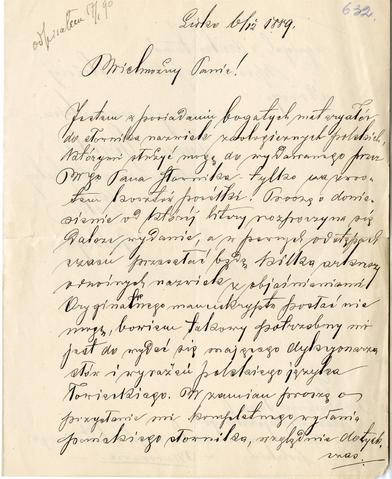 632.
odpisałem 17/1 90
Lisko 6/12 1889.
Wielmożny Panie!
Jestem w posiadaniu bogatych materyałów
do słownika nazwisk zoologicznych polskich,
któremi służyć mogę do wydawanego przez
WPgo Pana Słownika tylko za zwro-
tem kosztów posyłki. Proszę o donie-
sienie od której litery rozpoczyna się
dalsze wydanie, a w pewnych odstępach
czasu przesyłać będę kilka arkuszy
nazwisk z objaśnieniami.
Oryginalnego manuskryptu posłać nie
mogę, bowiem takowy potrzebny mi
jest do wydać się mającego dykcyonarza
słów i wyrażeń polskiego języka
łowieckiego. W zamian proszę o
przysłanie mi kompletnego wydania
pańskiego słownika, względnie dotych-
czas